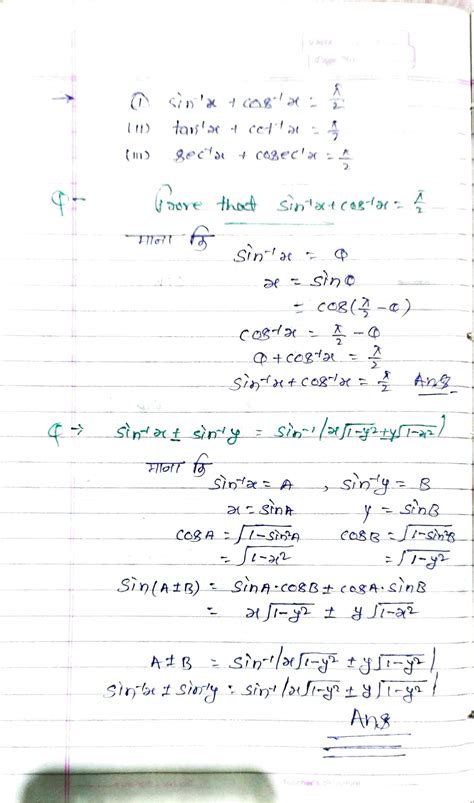 → (i) sin⁻¹x + cos⁻¹x = π/2
(ii) tan⁻¹x + cot⁻¹x = π/2
(iii) sec⁻¹x + cosec⁻¹x = π/2
Q- Prove that sin⁻¹x + cos⁻¹x = π/2
माना कि
sin⁻¹x = θ
x = sinθ
= cos(π/2 - θ)
cos⁻¹x = π/2 - θ
θ + cos⁻¹x = π/2
sin⁻¹x + cos⁻¹x = π/2 Ans
Q → sin⁻¹x ± sin⁻¹y = sin⁻¹(x√1-y² ± y√1-x²)
माना कि
sin⁻¹x = A , sin⁻¹y = B
x = sinA y = sinB
cosA = √1-sin²A cosB = √1-sin²B
= √1-x² = √1-y²
Sin(A±B) = SinA·cosB ± cosA·sinB
= x√1-y² ± y√1-x²
A±B = sin⁻¹(x√1-y² ± y√1-y²)
sin⁻¹x ± sin⁻¹y = sin⁻¹(x√1-y² ± y√1-y²)
Ans